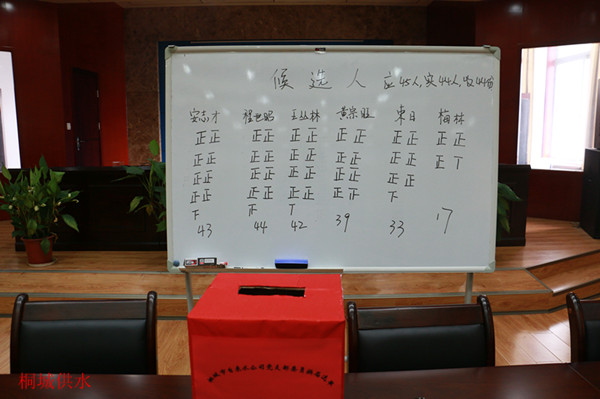 候选人 应45人,实44人,收44份
安志才 程世昭 王弘林 黄宗旺 东日 梅林
正正 正正 正正 正正 正正 正正
正正 正正 正正 正正 正正 正丅
正正 正正 正正 正正 正正
正正 正正 正正 正正 正正
下 正 丅 下
43 44 42 39 33 17
桐城供水